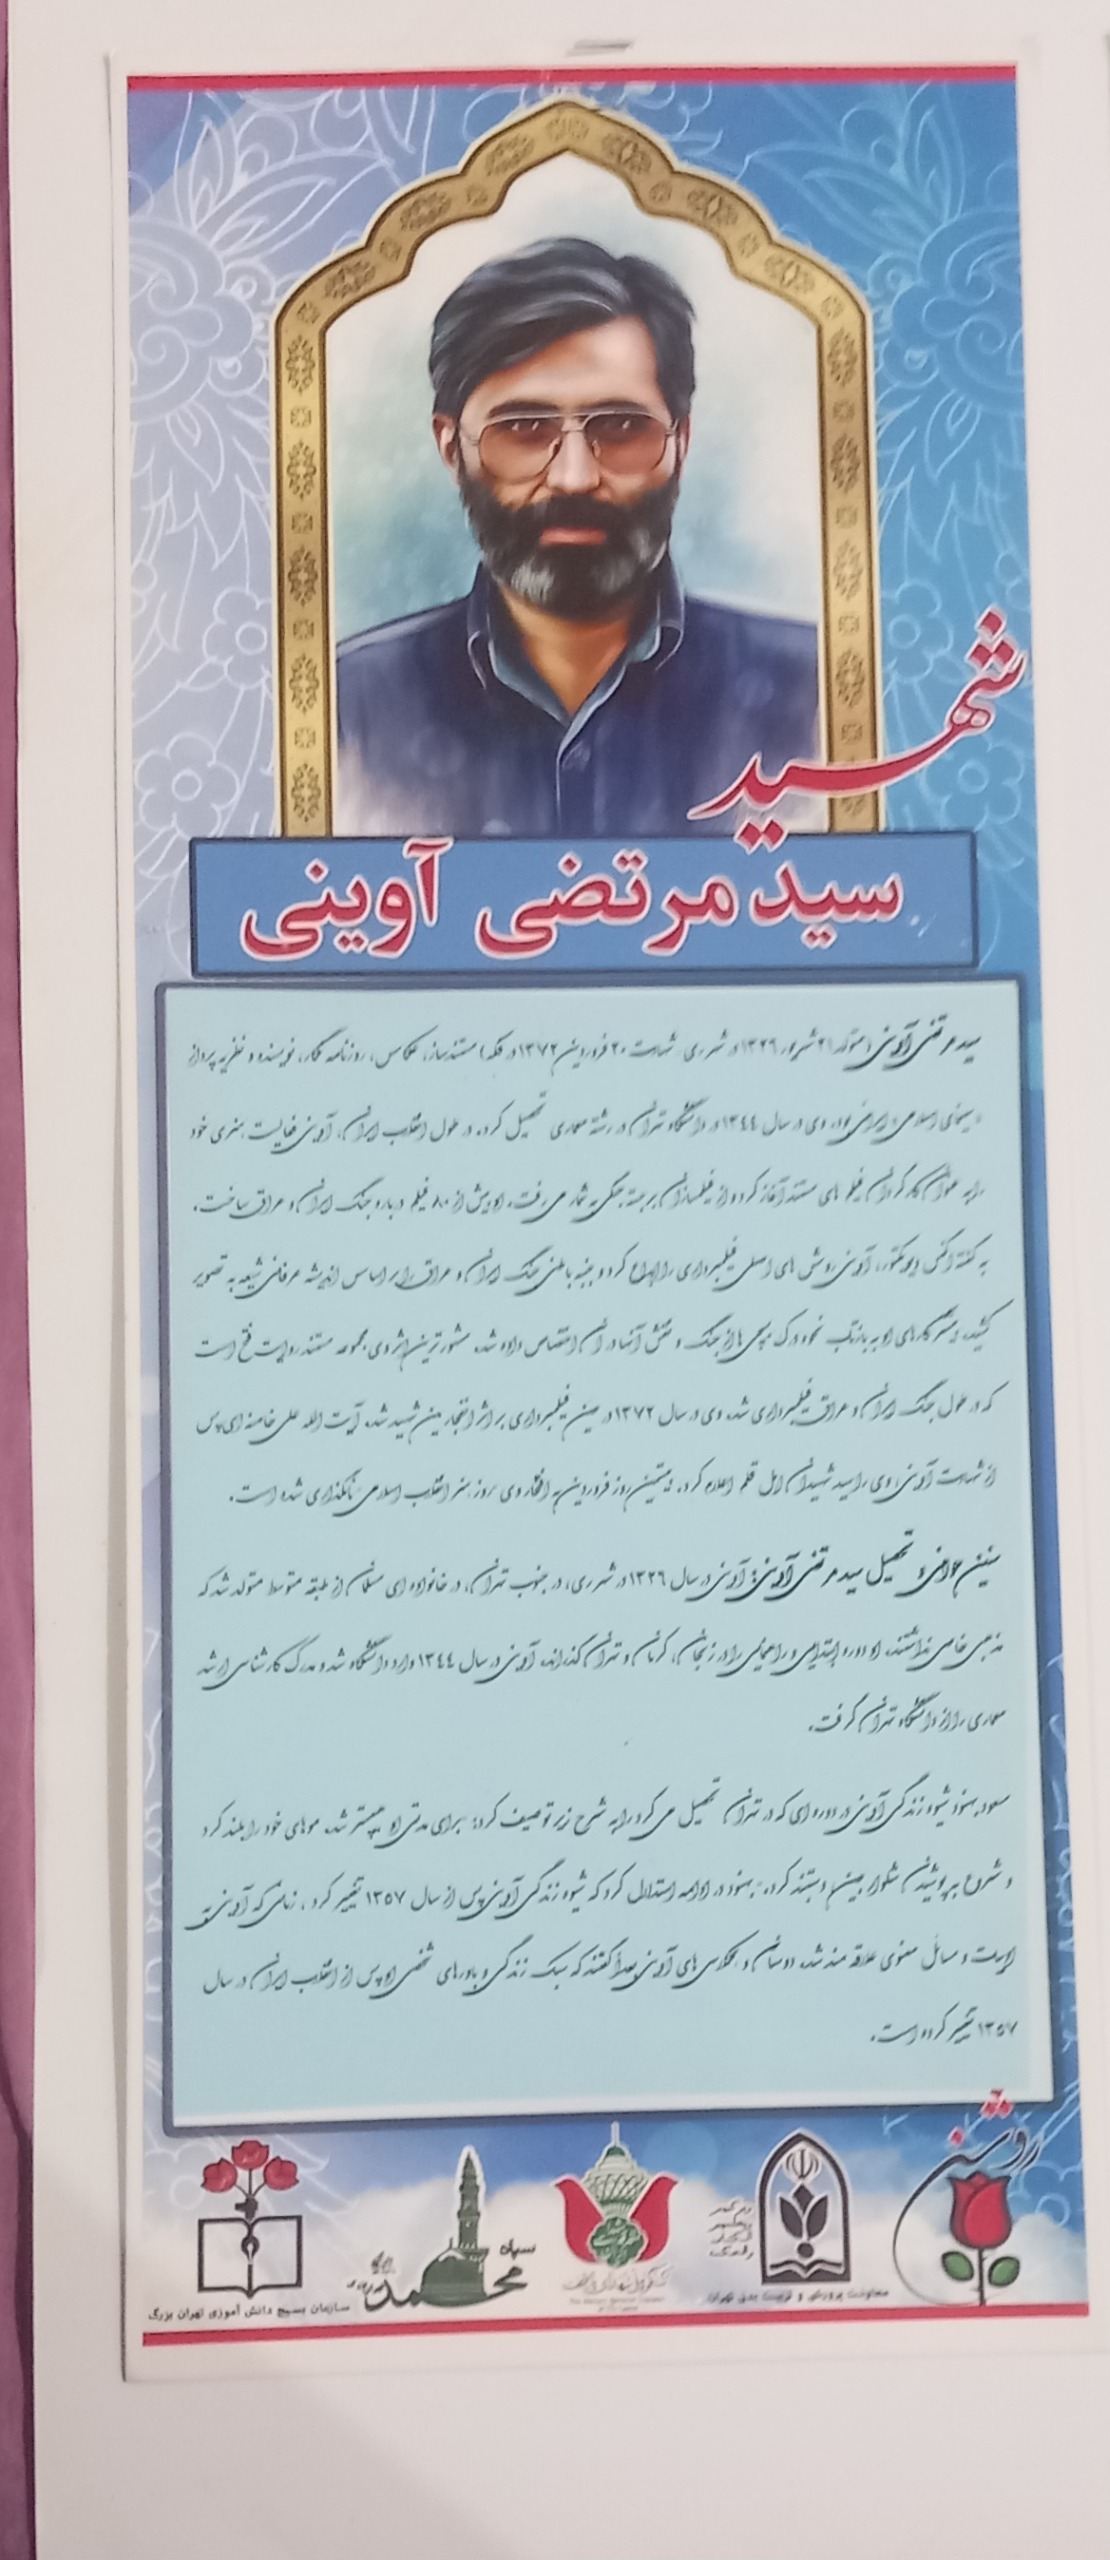 شهید
سید مرتضی آوینی
سید مرتضی آوینی (متولد ۲۱ شهریور ۱۳۲۶ در شهر ری شهادت ۲۰ فروردین ۱۳۷۲ در فکه) مستندساز، عکاس، روزنامه نگار، نویسنده و نظریه پرداز
«سینمای اسلامی» ایرانی بود. وی در سال ۱۳۴۴ در دانشگاه تهران در رشته معماری تحصیل کرد. در طول انقلاب ایران، آوینی فعالیت هنری خود
را به عنوان کارگردان فیلم های مستند آغاز کرد و از فیلمسازان برجسته جنگی به شمار می رفت. او بیش از ۸۰ فیلم درباره جنگ ایران و عراق ساخت.
به گفته اگنس دیوکتور، آوینی روش های اصلی فیلمبرداری را ابداع کرد و جنبه باطنی جنگ ایران و عراق را بر اساس اندیشه عرفانی شیعه به تصویر
کشید. بیشتر کارهای او به بازتاب نحوه درک بسیجی ها از جنگ و نقش آنها در آن اختصاص داده شد. مشهورترین اثر وی مجموعه مستند روایت فتح است
که در طول جنگ ایران و عراق فیلمبرداری شد. وی در سال ۱۳۷۲ در حین فیلمبرداری بر اثر انفجار مین شهید شد. آیت الله علی خامنه ای پس
از شهادت آوینی، وی را سید شهیدان اهل قلم اعلام کرد. بیستمین روز فروردین به افتخار وی «روز هنر انقلاب اسلامی» نامگذاری شده است.
سنین جوانی و تحصیل سید مرتضی آوینی: آوینی در سال ۱۳۲۶ در شهر ری، در جنوب تهران، در خانواده ای مسلمان از طبقه متوسط متولد شد که
مذهبی خاصی نداشتند. او دوره ابتدایی و راهنمایی را در زنجان، کرمان و تهران گذراند. آوینی در سال ۱۳۴۴ وارد دانشگاه شد و مدرک کارشناسی ارشد
معماری را از دانشگاه تهران گرفت.
مسعود بهنود شیوه زندگی آوینی در دوره ای که در تهران تحصیل می کرد را به شرح زیر توصیف کرد: برای مدتی او هیپستر شد، موهای خود را بلند کرد
و شروع به پوشیدن شلوار جین و دستبند کرد. بهنود در ادامه استدلال کرد که شیوه زندگی آوینی پس از سال ۱۳۵۷ تغییر کرد، زمانی که آوینی به
الهیات و مسائل معنوی علاقه مند شد. دوستان و همکلاسی های آوینی بعداً گفتند که سبک زندگی و باورهای شخصی او پس از انقلاب ایران در سال
۱۳۵۷ تغییر کرده است.
روشن
معاونت پرورشی و تربیت بدنی تهران
سپاه
محمد
سازمان بسیج دانش آموزی تهران بزرگ